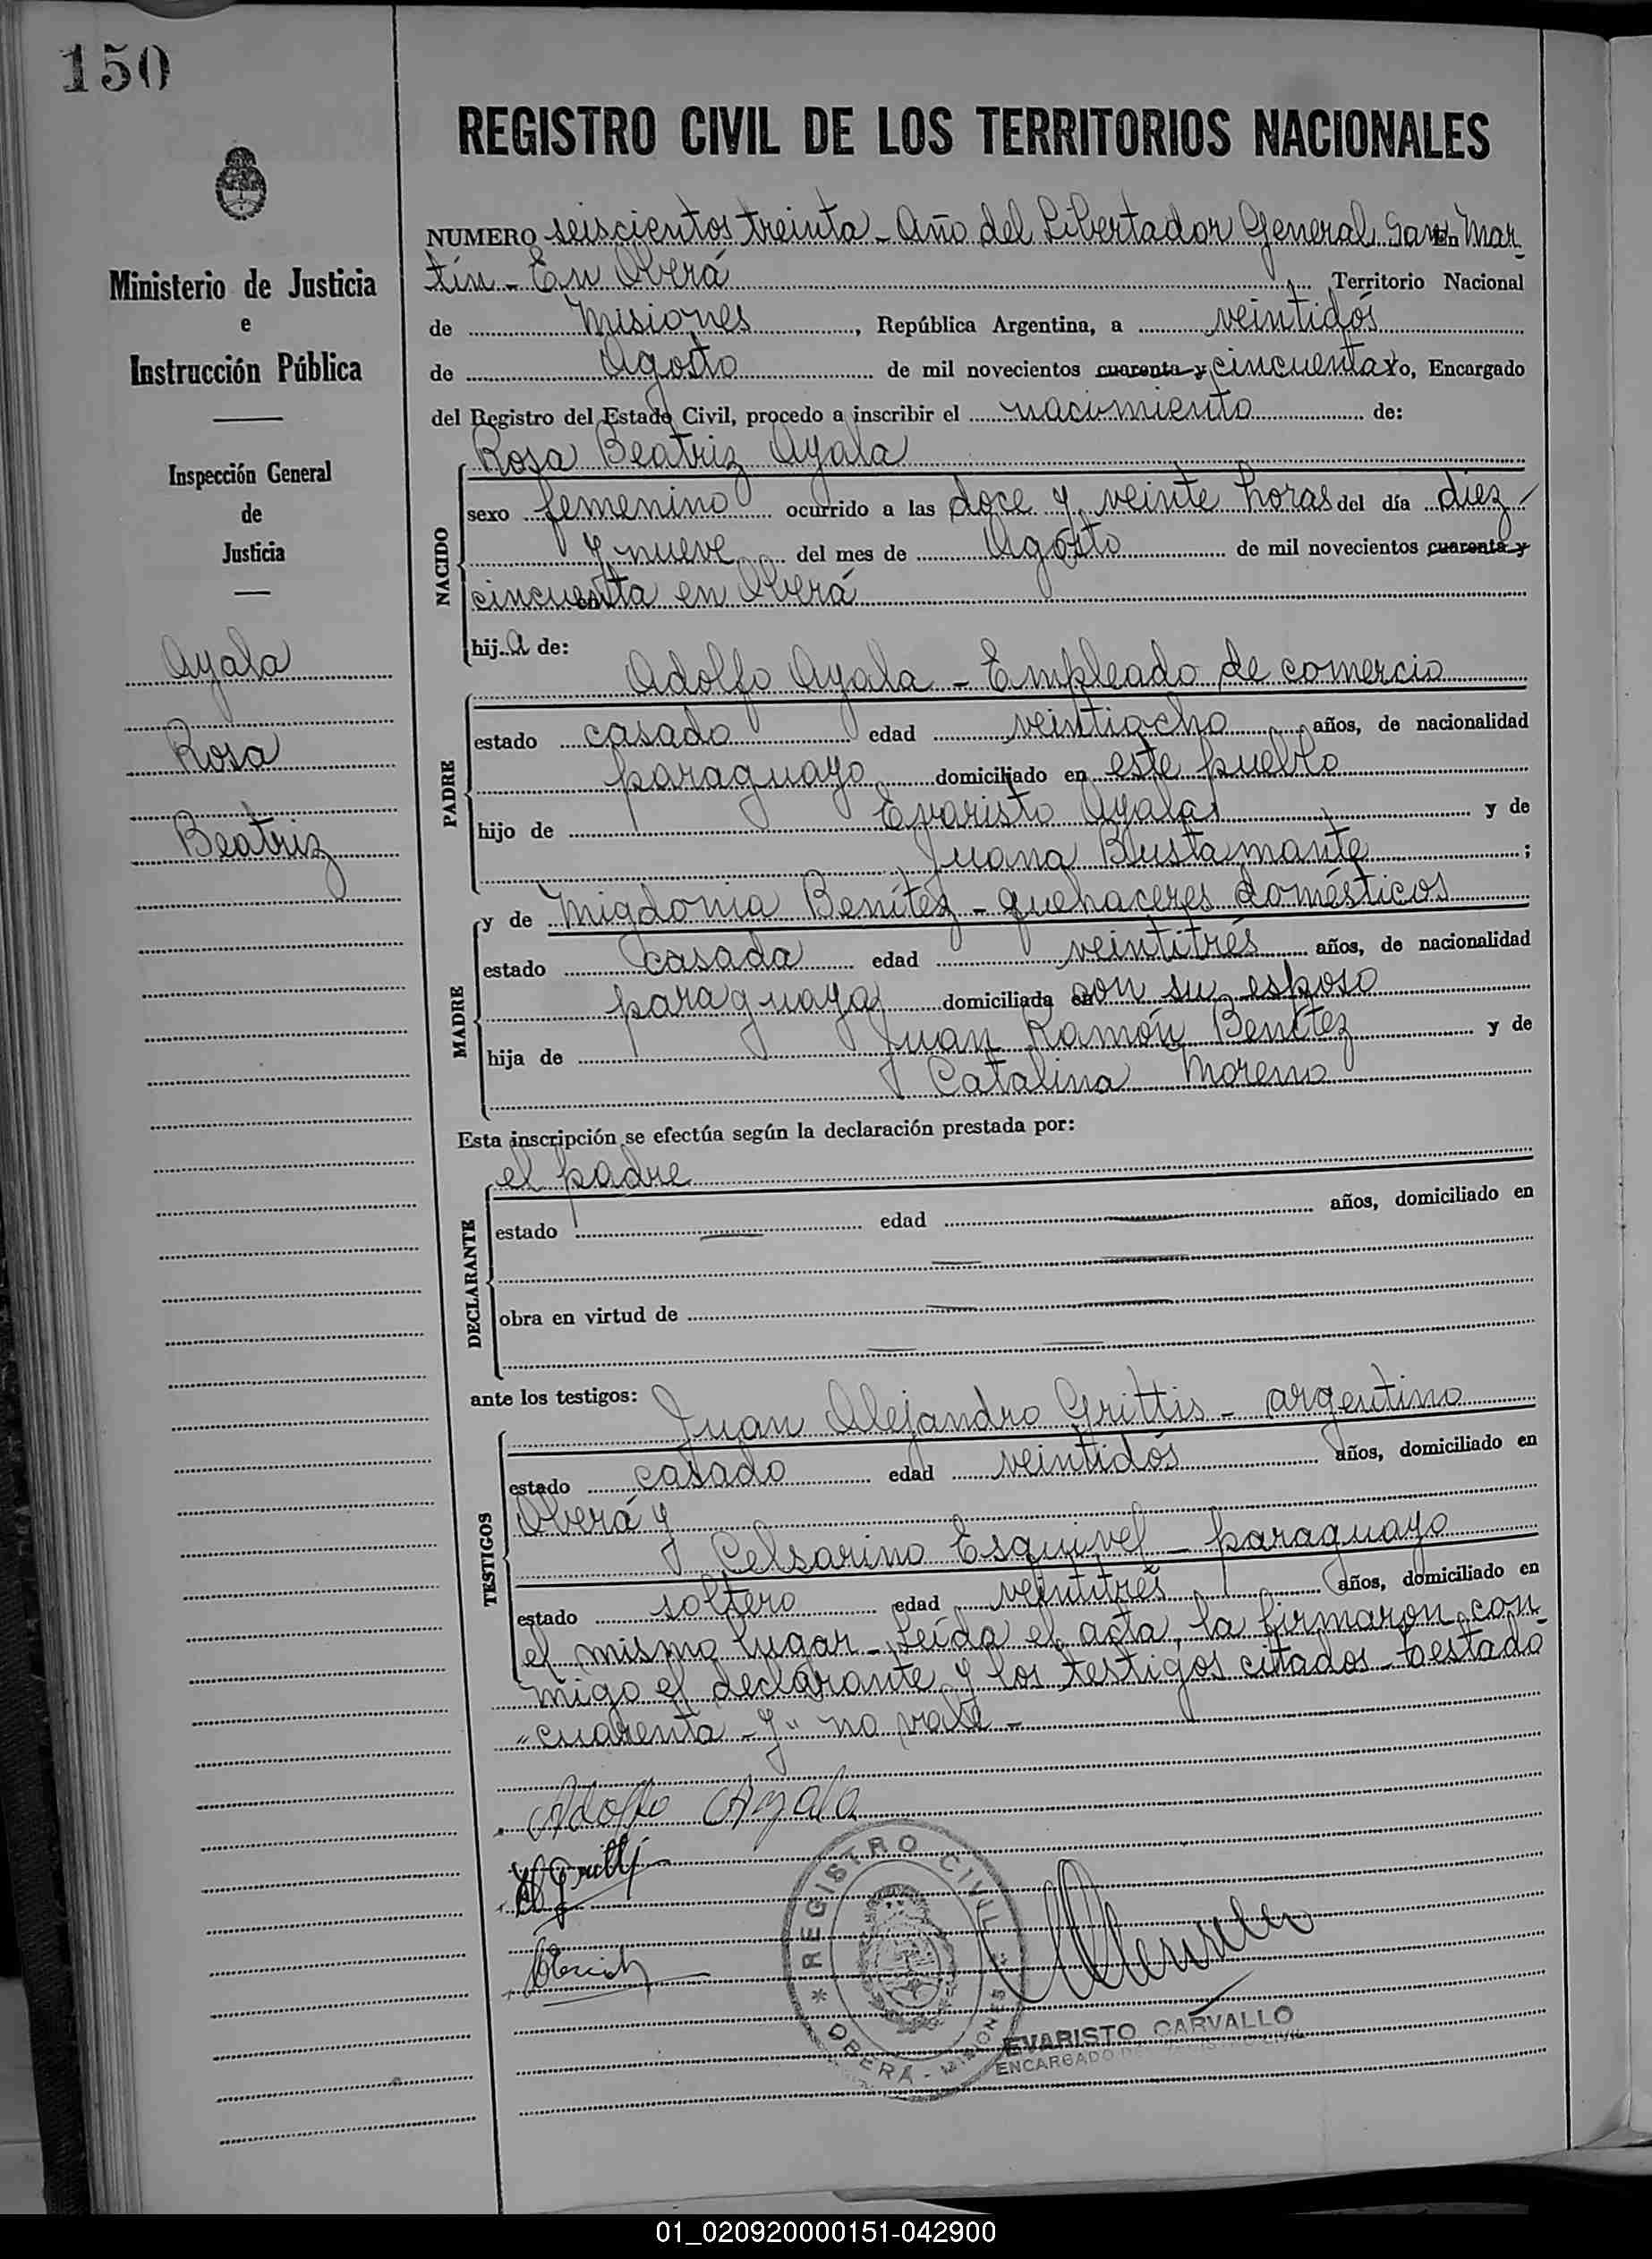 150
REGISTRO CIVIL DE LOS TERRITORIOS NACIONALES
Ministerio de Justicia
e
Instrucción Pública
Inspección General
de
Justicia
Ayala
Rosa
Beatriz
NUMERO seiscientos treinta - Año del Libertador General San Mar-
tín - En Oberá Territorio Nacional
de Misiones, República Argentina, a veintidós
de Agosto de mil novecientos cuarenta y cincuenta yo, Encargado
del Registro del Estado Civil, procedo a inscribir el nacimiento de:
NACIDO
Rosa Beatriz Ayala
sexo femenino ocurrido a las doce y veinte horas del día diez
y nueve del mes de Agosto de mil novecientos cuarenta y
cincuenta en Oberá
hija de:
PADRE
Adolfo Ayala - Empleado de comercio
estado casado edad veintiocho años, de nacionalidad
paraguayo domiciliado en este pueblo
hijo de Evaristo Ayala y de
Juana Bustamante ;
MADRE
y de Migdonia Benítez - quehaceres domésticos
estado casada edad veintitrés años, de nacionalidad
paraguaya domiciliada con su esposo
hija de Juan Ramón Benítez y de
Catalina Moreno
Esta inscripción se efectúa según la declaración prestada por:
DECLARANTE
el padre
estado edad años, domiciliado en
obra en virtud de
ante los testigos:
TESTIGOS
Juan Alejandro Grittis - argentino
estado casado edad veintidós años, domiciliado en
Oberá y
Celsarino Esquivel - paraguayo
estado soltero edad veintitrés años, domiciliado en
el mismo lugar - Leída el acta, la firmaron con-
migo el declarante y los testigos citados - Testado
"cuarenta - y" no vale -
Adolfo Ayala
* REGISTRO CIVIL *
OBERÁ - MISIONES
EVARISTO CARVALLO
ENCARGADO DEL REGISTRO CIVIL
01_020920000151-042900